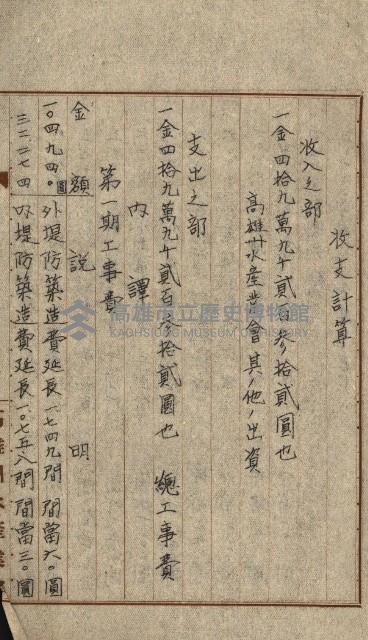 收支計算
收入之部
一金四拾九萬九千貳百參拾貳圓也
高雄州水產業會其ノ他ノ出資
支出之部
一金四拾九萬九千貳百參拾貳圓也 總工事費
內譯
第一期工事費
金額 說明
一〇四九四〇圓 外堤防築造費延長一七四九間 間當六〇圓
三二二七四 內堤防築造費延長一〇七五八間 間當三〇圓
高雄市立歷史博物館
KAOHSIUNG MUSEUM OF HISTORY